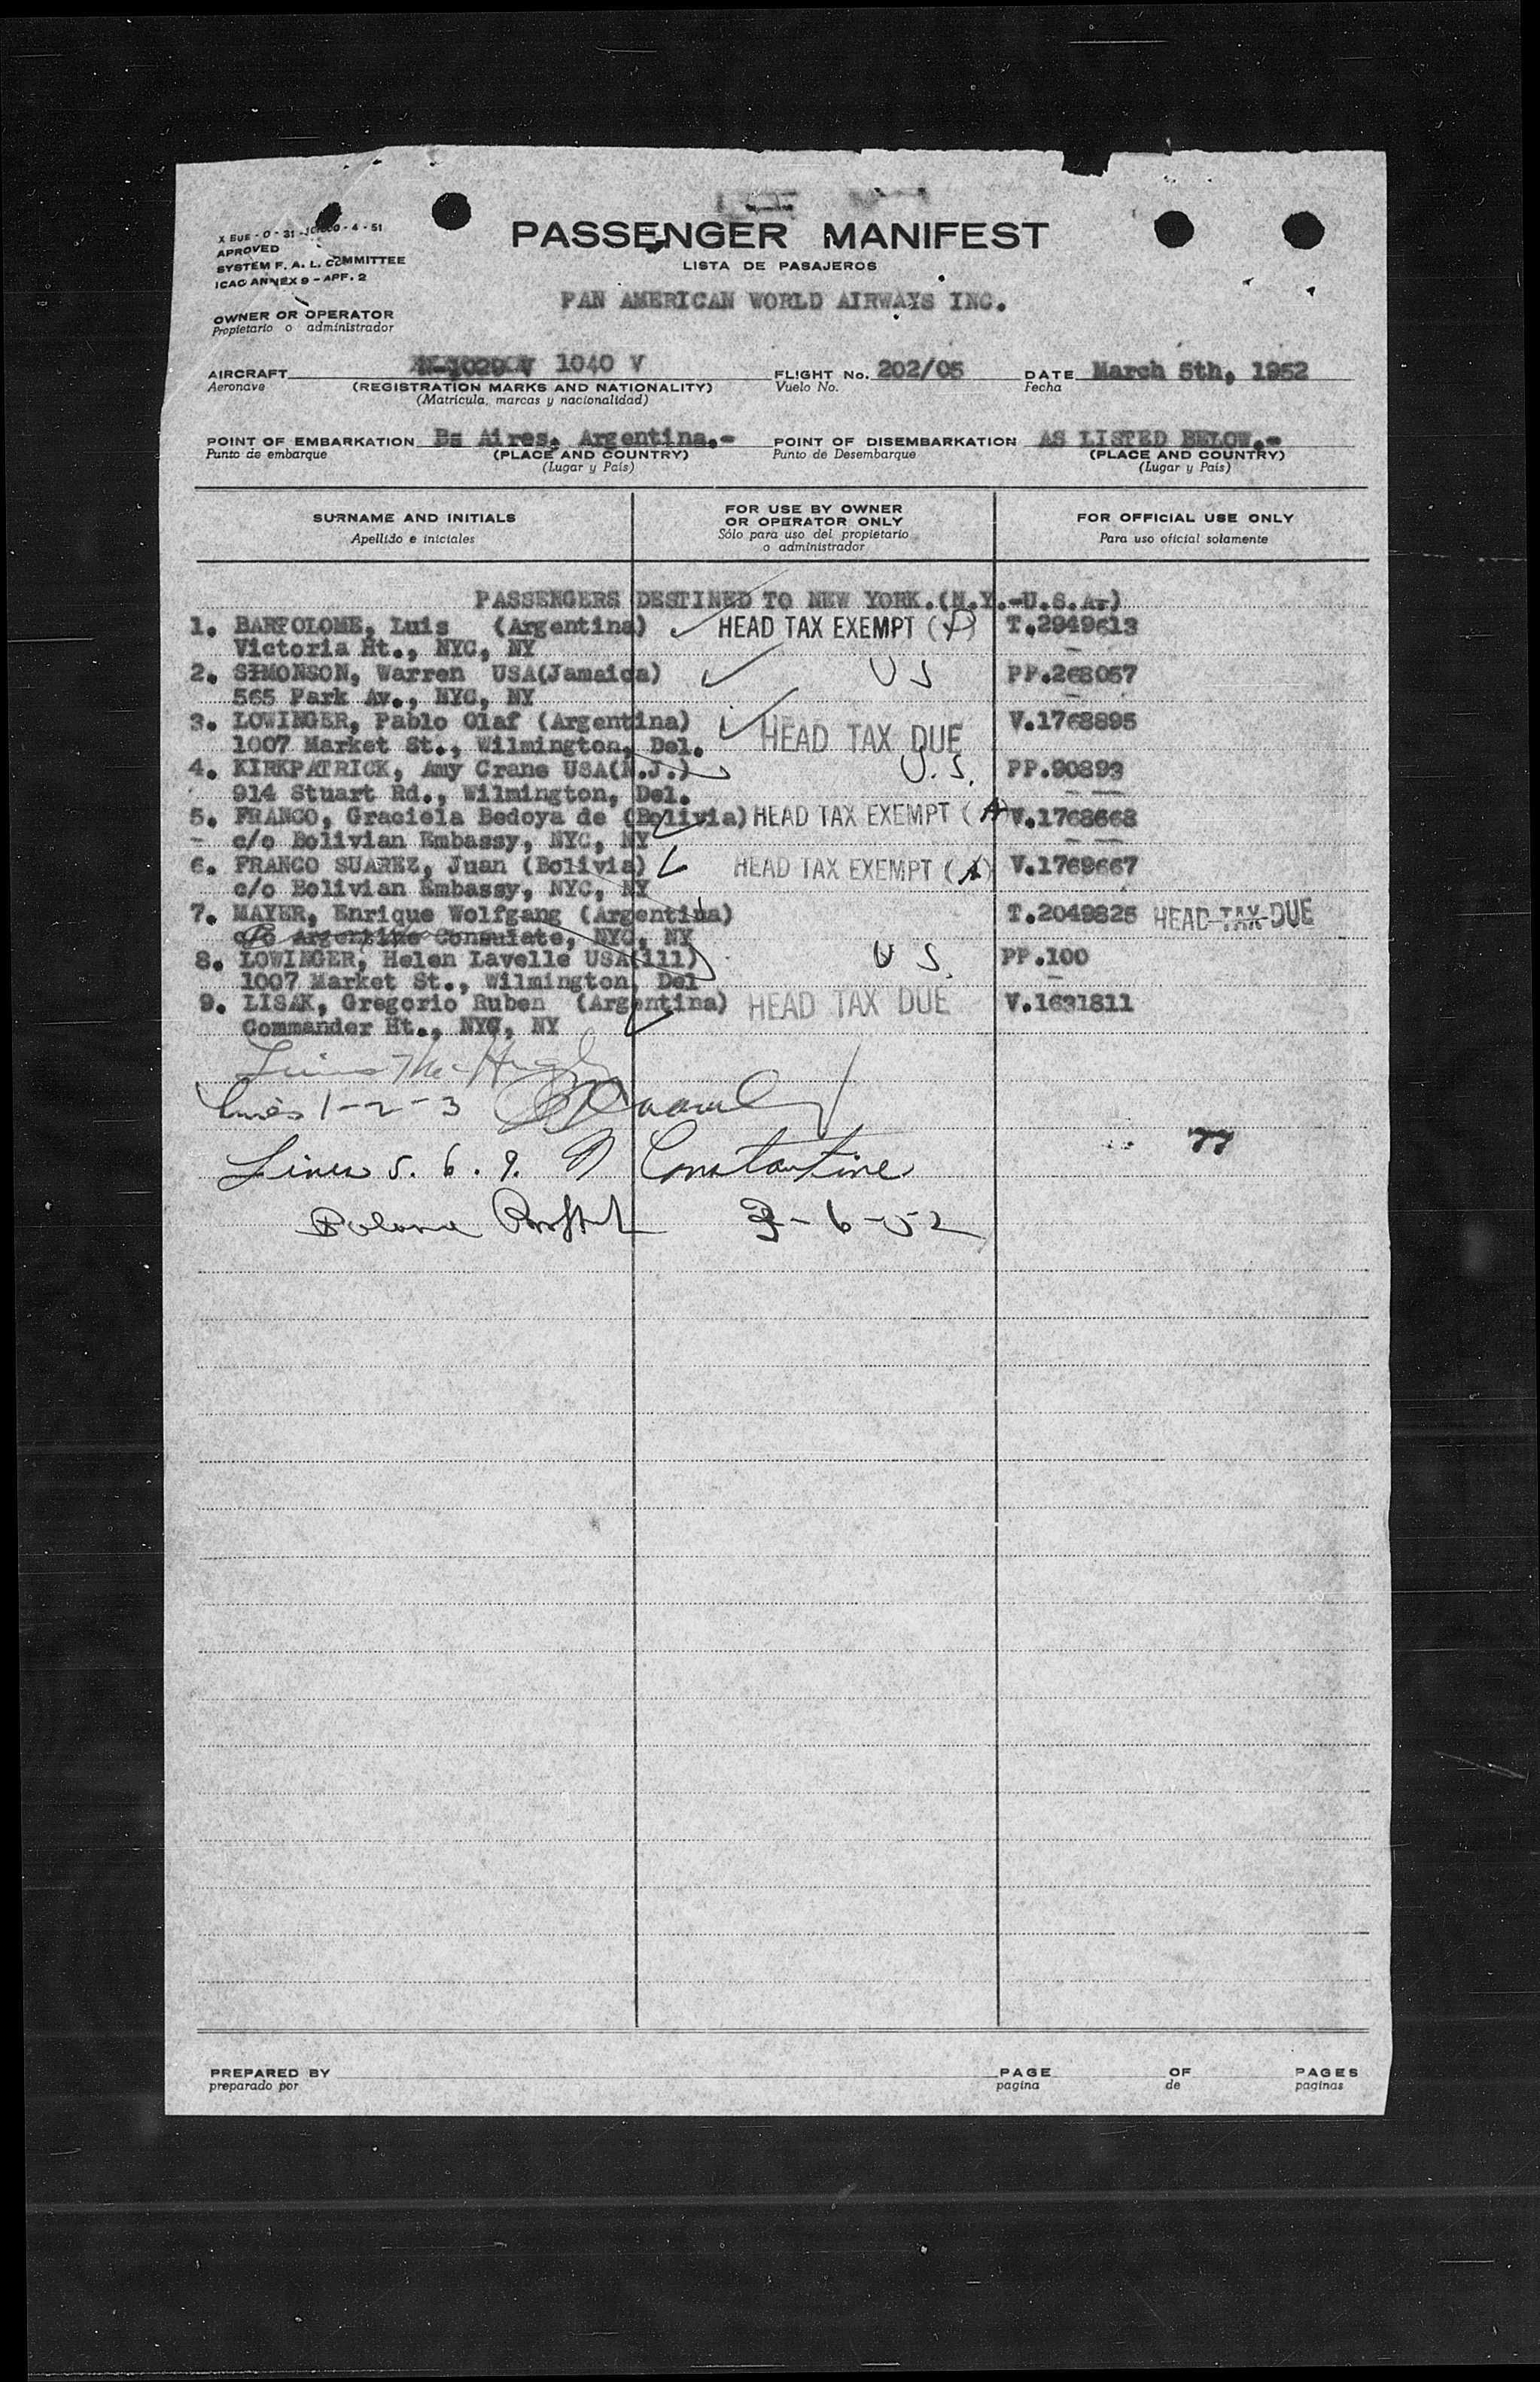 PASSENGER MANIFEST
LISTA DE PASAJEROS
APROVED
SYSTEM F. A. L. COMMITTEE
ICAO ANNEX 9 - APP. 2
PAN AMERICAN WORLD AIRWAYS INC.
OWNER OR OPERATOR
Propietario o administrador
AIRCRAFT N-1029 V 1040 V FLIGHT No. 202/05 DATE March 5th, 1952
Aeronave (REGISTRATION MARKS AND NATIONALITY) Vuelo No. Fecha
(Matrícula, marcas y nacionalidad)
POINT OF EMBARKATION Bs Aires, Argentina.- POINT OF DISEMBARKATION AS LISTED BELOW.-
Punto de embarque (PLACE AND COUNTRY) Punto de Desembarque (PLACE AND COUNTRY)
(Lugar y País) (Lugar y País)
SURNAME AND INITIALS FOR USE BY OWNER OR OPERATOR ONLY FOR OFFICIAL USE ONLY
Apellido e iniciales Sólo para uso del propietario o administrador Para uso oficial solamente
PASSENGERS DESTINED TO NEW YORK.(N.Y.-U.S.A.)
1. BARTOLOME, Luis (Argentina) HEAD TAX EXEMPT ( ) T.2949613
Victoria Ht., NYC, NY
2. SIMONSON, Warren USA(Jamaica) US PP.268057
565 Park Av., NYC, NY
3. LOWINGER, Pablo Olaf (Argentina) HEAD TAX DUE V.1768895
1007 Market St., Wilmington, Del.
4. KIRKPATRICK, Amy Crane USA(N.J.) U.S. PP.90893
914 Stuart Rd., Wilmington, Del.
5. FRANCO, Graciela Bedoya de (Bolivia) HEAD TAX EXEMPT (A) V.1768668
- c/o Bolivian Embassy, NYC, NY
6. FRANCO SUAREZ, Juan (Bolivia) HEAD TAX EXEMPT (A) V.1769667
c/o Bolivian Embassy, NYC, NY
7. MAYER, Enrique Wolfgang (Argentina) T.2049825 HEAD TAX DUE
c/o Argentine Consulate, NYC, NY
8. LOWINGER, Helen Lavelle USA(ill) U S. PP.100
1007 Market St., Wilmington, Del
9. LISAK, Gregorio Ruben (Argentina) HEAD TAX DUE V.1631811
Commander Ht., NYC, NY
Lines 1-2-3
77
Lines 5. 6. 9. Constantine
3-6-52
PREPARED BY PAGE OF PAGES
preparado por pagina de paginas